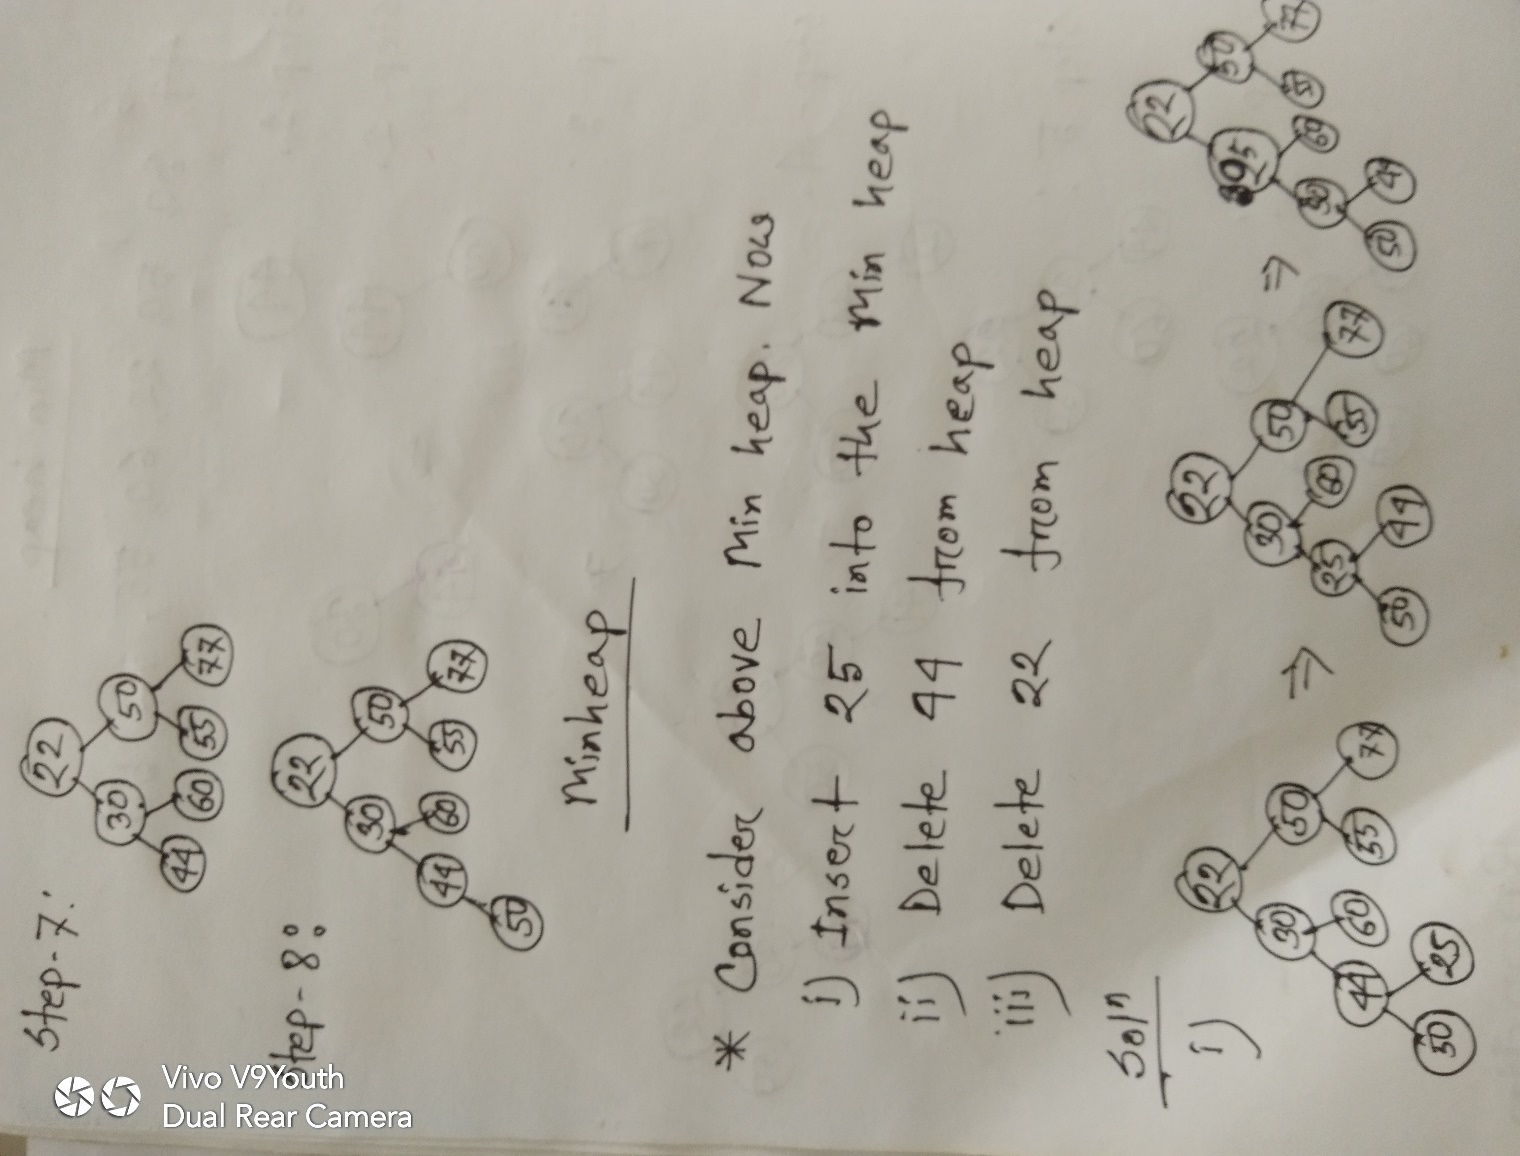 Step-7:
22
30 50
44 60 55 77
Step-8:
22
30 50
44 60 55 77
50
Minheap
* Consider above Min heap. Now
i) Insert 25 into the Min heap
ii) Delete 44 from heap
iii) Delete 22 from heap
Soln
i)
22
30 50
44 60 55 77
50 25
⇒
22
30 50
25 60 55 77
50 44
⇒
22
25 50
30 60 55 77
50 44
Vivo V9Youth
Dual Rear Camera